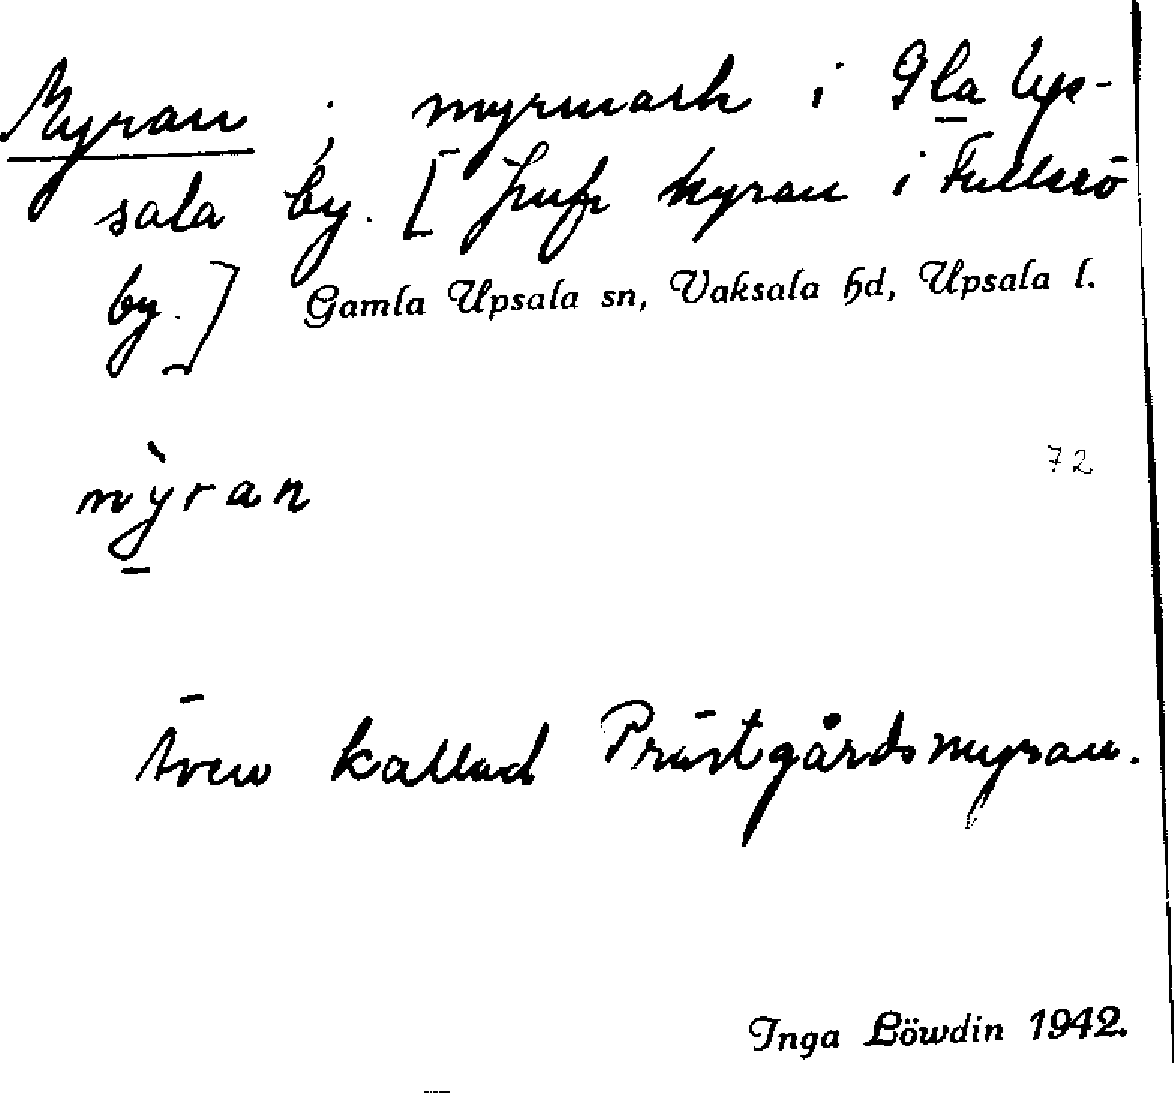 Myran ; myrmark i Gla Up-
sala by. [Jmfr Myran i Fullerö
by.] Gamla Upsala sn, Vaksala hd, Upsala l.
72
mỳran
Även kallad Prästgårdsmyran.
Inga Löwdin 1942.